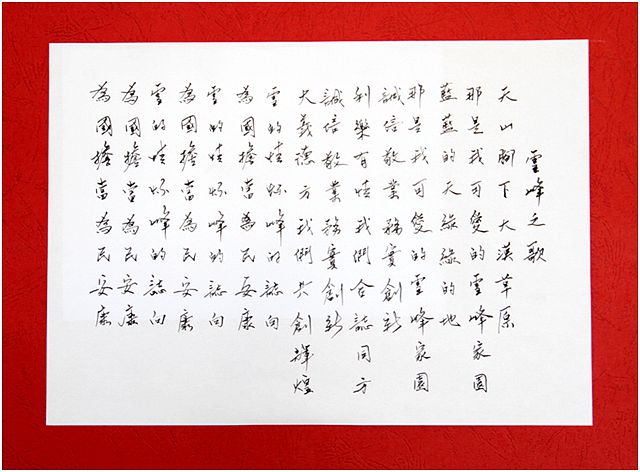 雲峰之歌
天山腳下大漠草原
那是我可愛的雲峰家園
藍藍的天綠綠的地
那是我可愛的雲峰家園
誠信敬業務實創新
利樂有情我們合誌同方
誠信敬業務實創新
大義德方我們共創輝煌
雲的情懷峰的誌向
為國擔當為民安康
雲的情懷峰的誌向
為國擔當為民安康
雲的情懷峰的誌向
為國擔當為民安康
為國擔當為民安康